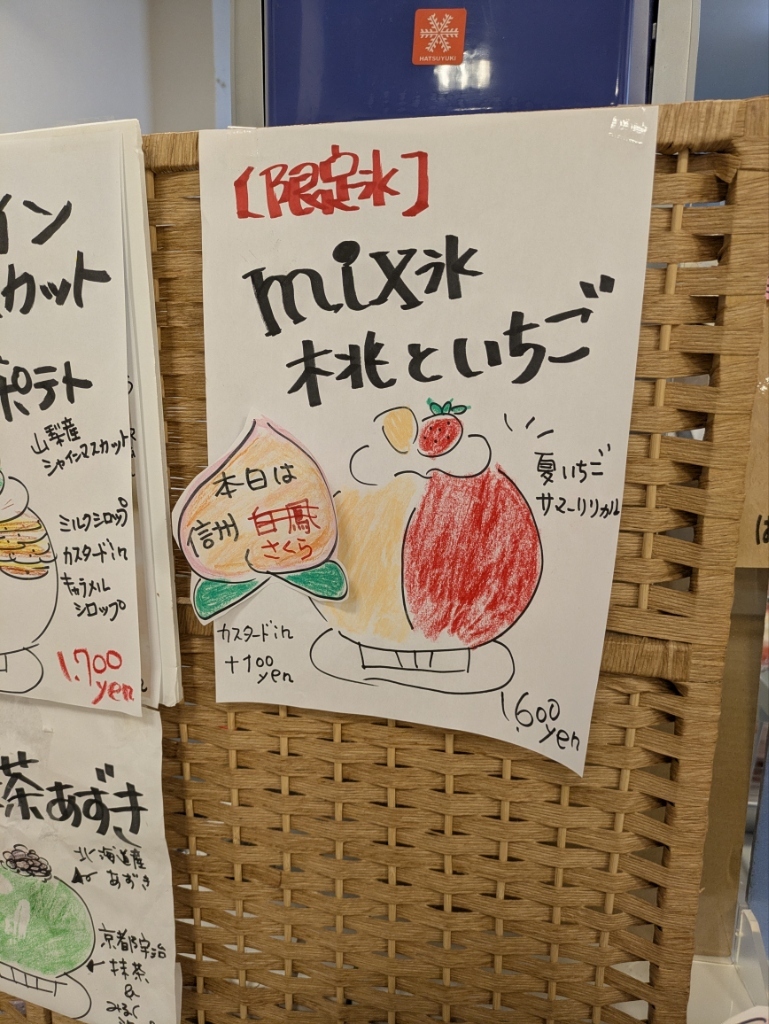 HATSUYUKI
[限定氷]
mix氷
桃といちご
本日は
信州 白鳳
さくら
夏いちご
サマーリリカル
カスタードin
+100
yen
1,600
yen
イン
カット
ポテト
山梨産
シャインマスカット
ミルクシロップ
カスタードin
キャラメル
シロップ
1,700
yen
茶あずき
北海道産
あずき
京都宇治
抹茶
&
みるく
は